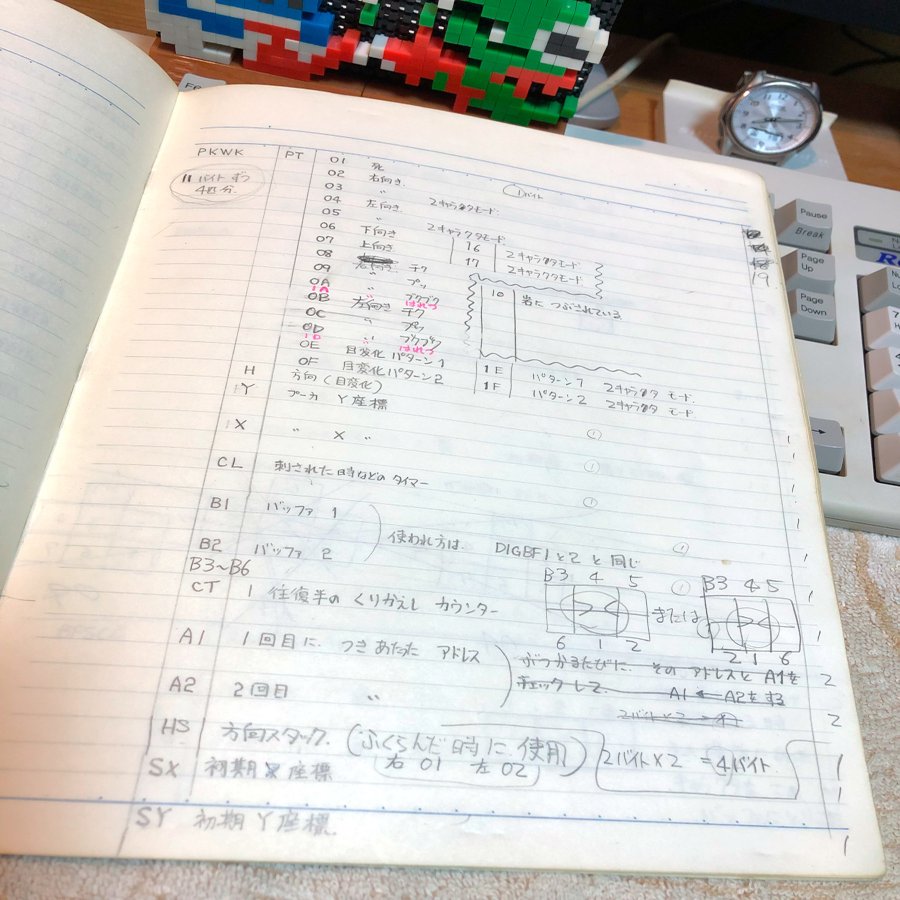 PKWK PT 01 死
11バイトずつ 4匹分
02 右向き ①バイト
03 〃
04 左向き 2キャラクタモード
05 〃
06 下向き 2キャラクタモード
07 上向き 16 2キャラクタモード
08 17 2キャラクタモード
09 右向き チク
0A 〃 プッ 10 岩につぶされている
1A
0B 〃 ブクブク
はれつ
0C 左向き チク
0D 〃 プッ
1D
0E 〃 ブクブク
はれつ
0F 目変化 パターン1 1E パターン1 2キャラクタ モード.
目変化 パターン2 1F パターン2 2キャラクタ モード
H 方向 (目変化)
Y プーカ Y座標
X 〃 X 〃 ① 1
CL 刺された時などの タイマー ① 1
B1 バッファ 1 ① 1
使われ方は. DIGBF1と2と同じ
B2 バッファ 2 ① 1
B3~B6 B3 4 5 ① B3 4 5
CT 1往復半の くりかえし カウンター または 1
6 1 2 2 1 6
A1 1回目に. つきあたった アドレス ぶつかるたびに. そのアドレスと A1を 2
チェックして. A1 ← A2をする
A2 2回目 〃 2
HS 方向スタック. (ふくらんだ時に使用) 2バイト×2 =④バイト 1
右 01 左 02
SX 初期X座標 1
SY 初期Y座標. 1
19
Pause
Break
Page Up
Page Down